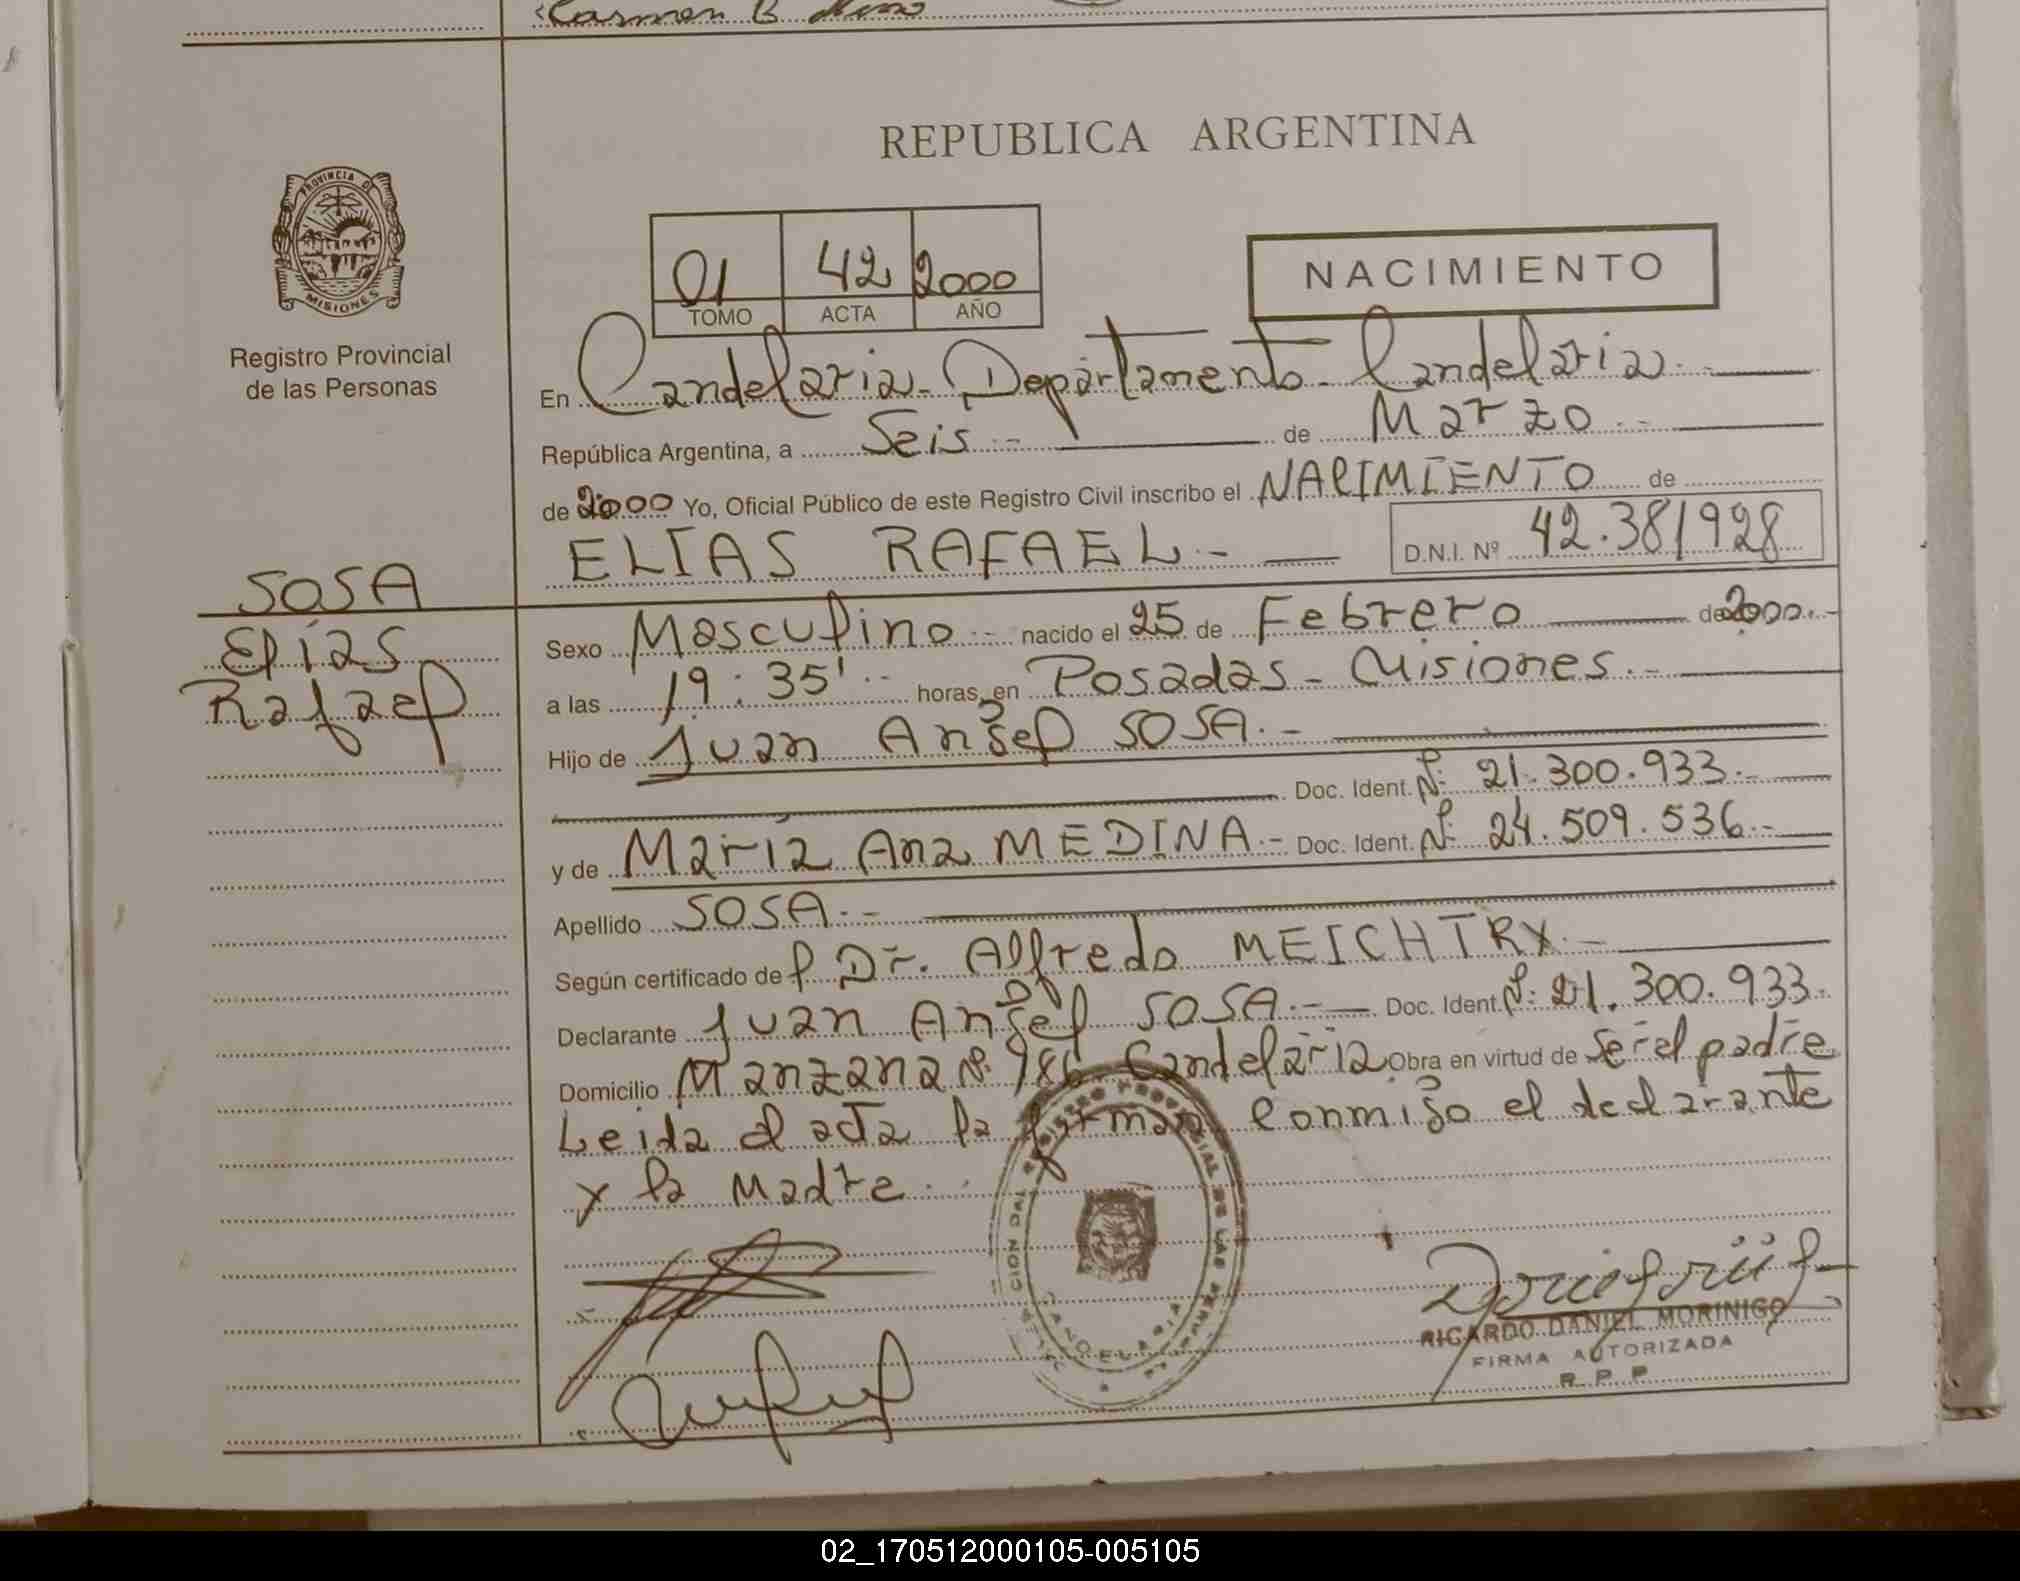 Carmen B
REPUBLICA ARGENTINA
PROVINCIA DE MISIONES
01 42 2000
TOMO ACTA AÑO
NACIMIENTO
Registro Provincial
de las Personas
En Candelaria - Departamento - Candelaria.-
República Argentina, a Seis.- de Marzo.-
de 2000 Yo, Oficial Público de este Registro Civil inscribo el NACIMIENTO de
ELIAS RAFAEL.- D.N.I. Nº 42.381928
SOSA
Elías
Rafael
Sexo Masculino.- nacido el 25 de Febrero de 2000.-
a las 19:35'.- horas, en Posadas - Misiones.-
Hijo de Juan Angel SOSA.-
Doc. Ident. Nº: 21.300.933.-
y de María Ana MEDINA.- Doc. Ident. Nº: 24.509.536.-
Apellido SOSA.-
Según certificado de l Dr. Alfredo MEICHTRY.-
Declarante Juan Angel SOSA.- Doc. Ident. Nº: 21.300.933.-
Domicilio Manzana Nº 986 Candelaria Obra en virtud de Ser el padre
Leida el acta la firman conmigo el declarante
y la Madre.
REGISTRO PROVINCIAL DE LAS PERSONAS
CANDELARIA
RICARDO DANIEL MORINIGO
FIRMA AUTORIZADA
R P P
02_170512000105-005105